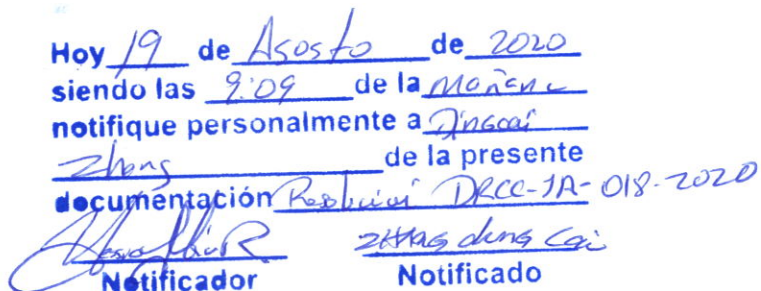 Hoy 19 de Agosto de 2020
siendo las 9:09 de la Mañana
notifique personalmente a Jingcai
Zhang de la presente
documentación Resolución DRCC-IA-018-2020
Notificador Notificado